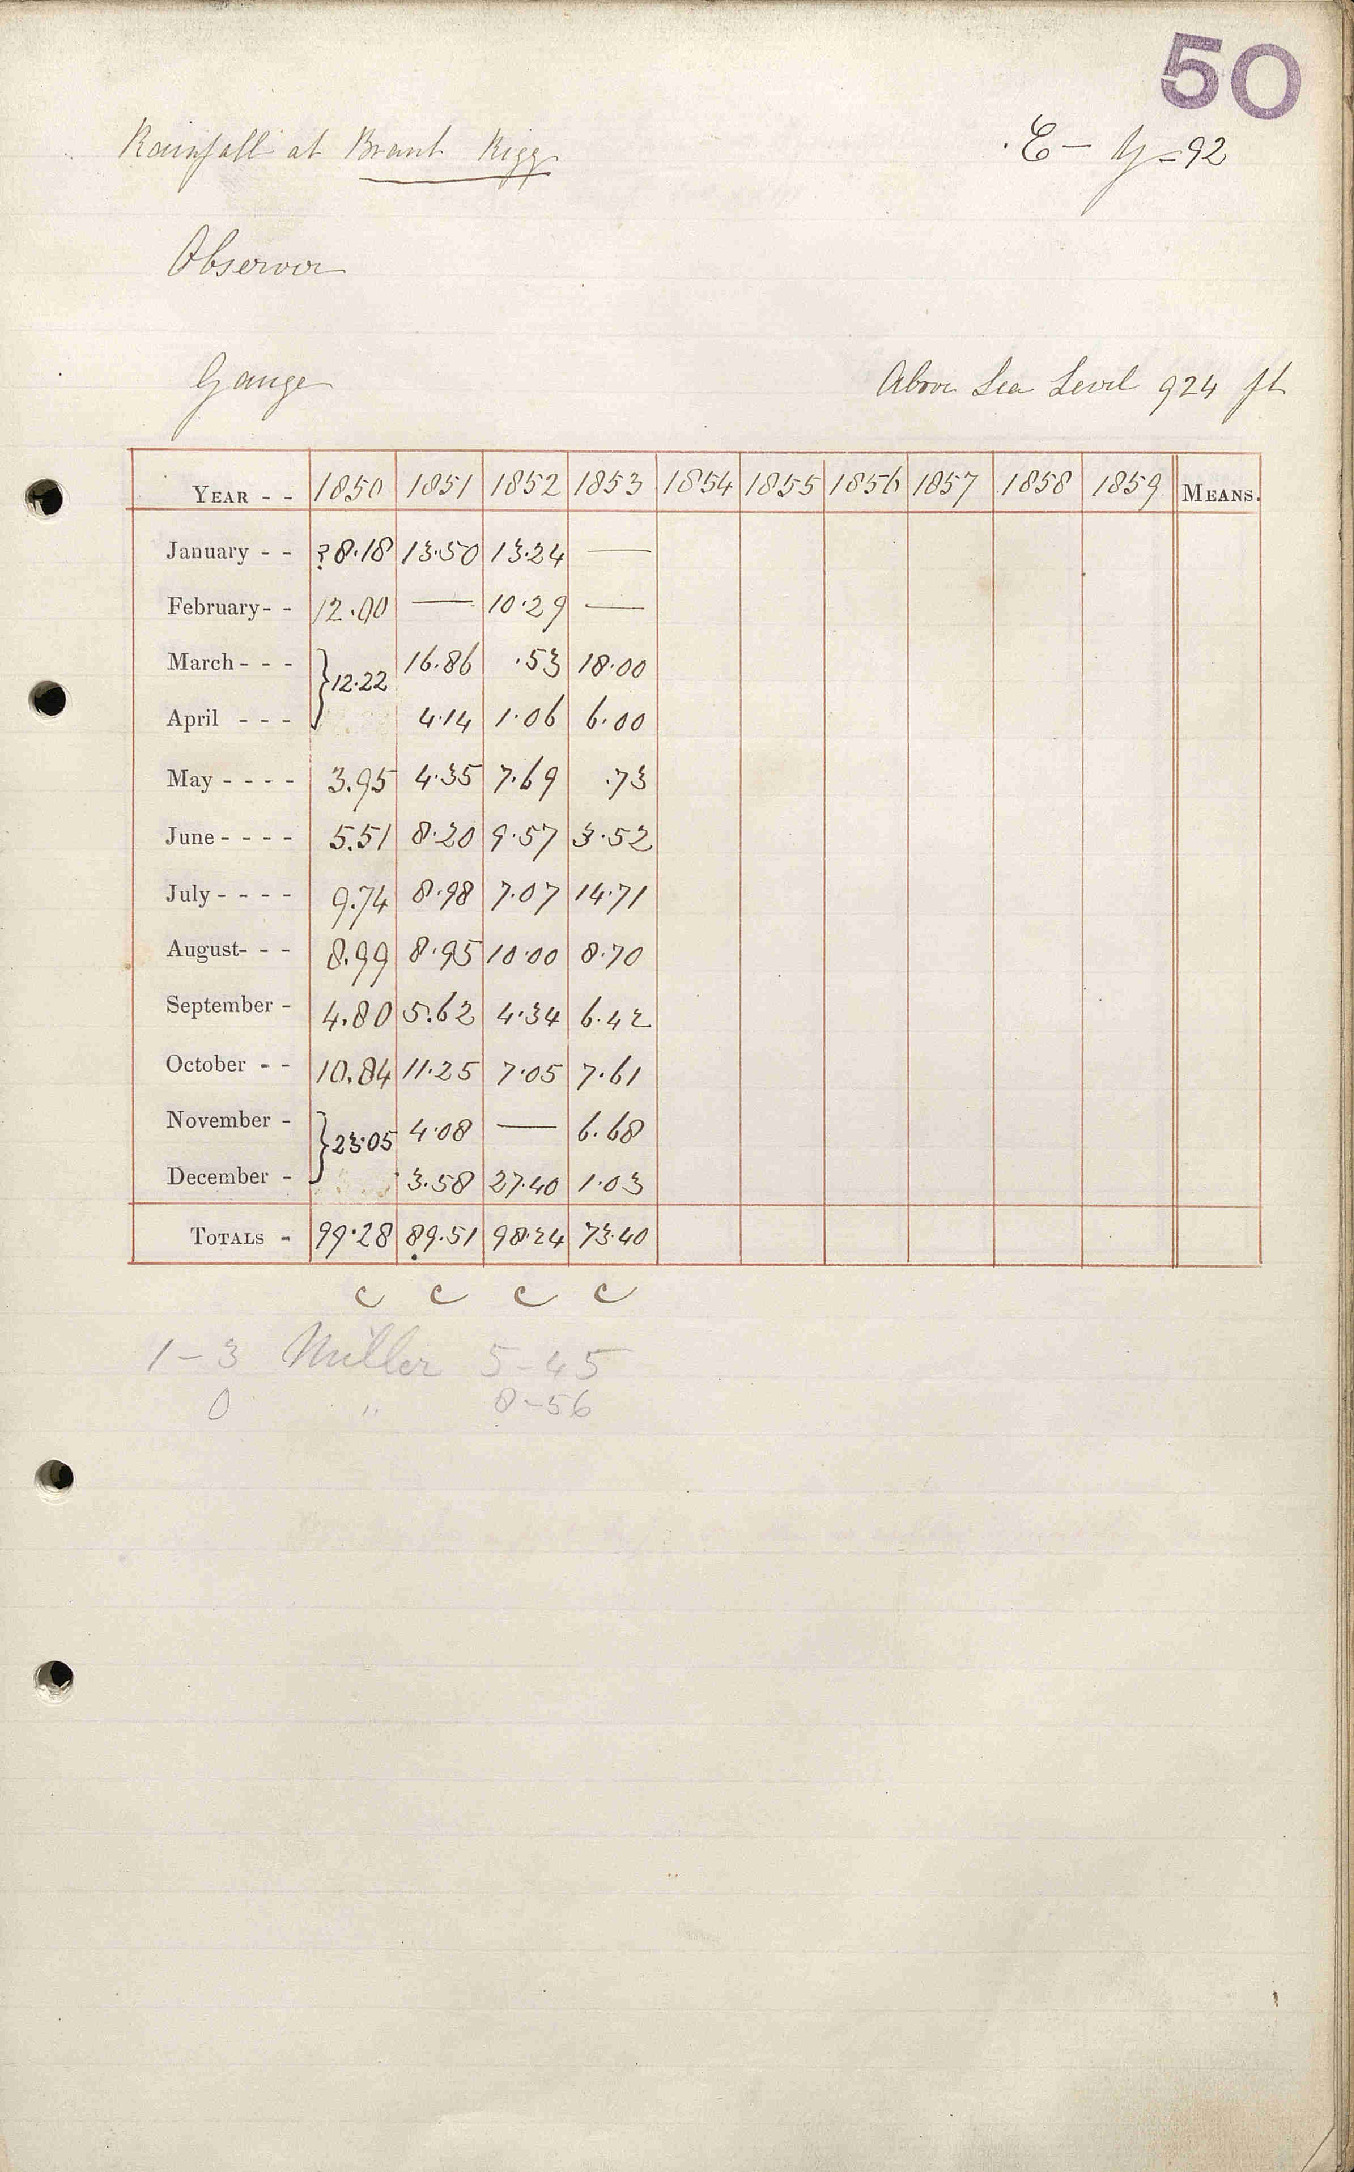 50
Rainfall at Brant Rigg
E - y = 92
Observer
Gauge Above Sea Level 924 ft
YEAR - - 1850 1851 1852 1853 1854 1855 1856 1857 1858 1859 MEANS.
January - - ?8.18 13.50 13.24 —
February - - 12.00 — 10.29 —
March - - - } 12.22 16.86 .53 18.00
April - - - 4.14 1.06 6.00
May - - - - 3.95 4.35 7.69 .73
June - - - - 5.51 8.20 9.57 3.52
July - - - - 9.74 8.98 7.07 14.71
August - - - 8.99 8.95 10.00 8.70
September - 4.80 5.62 4.34 6.42
October - - 10.84 11.25 7.05 7.61
November - } 23.05 4.08 — 6.68
December - 3.58 27.40 1.03
TOTALS - 99.28 89.51 98.24 73.40
c c c c
1-3 Miller 5-45
0 " 8-56